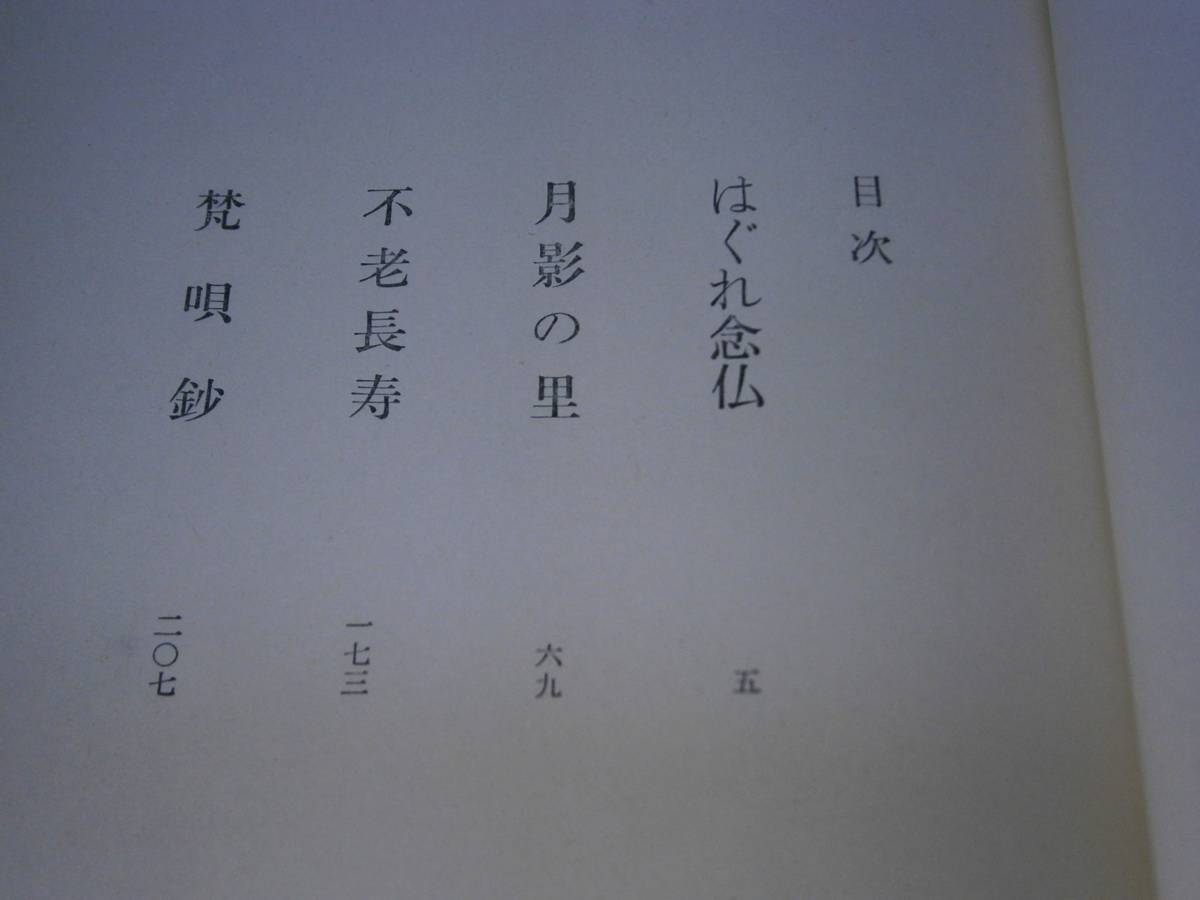 目次
はぐれ念仏 五
月影の里 六九
不老長寿 一七三
梵唄鈔 二〇七